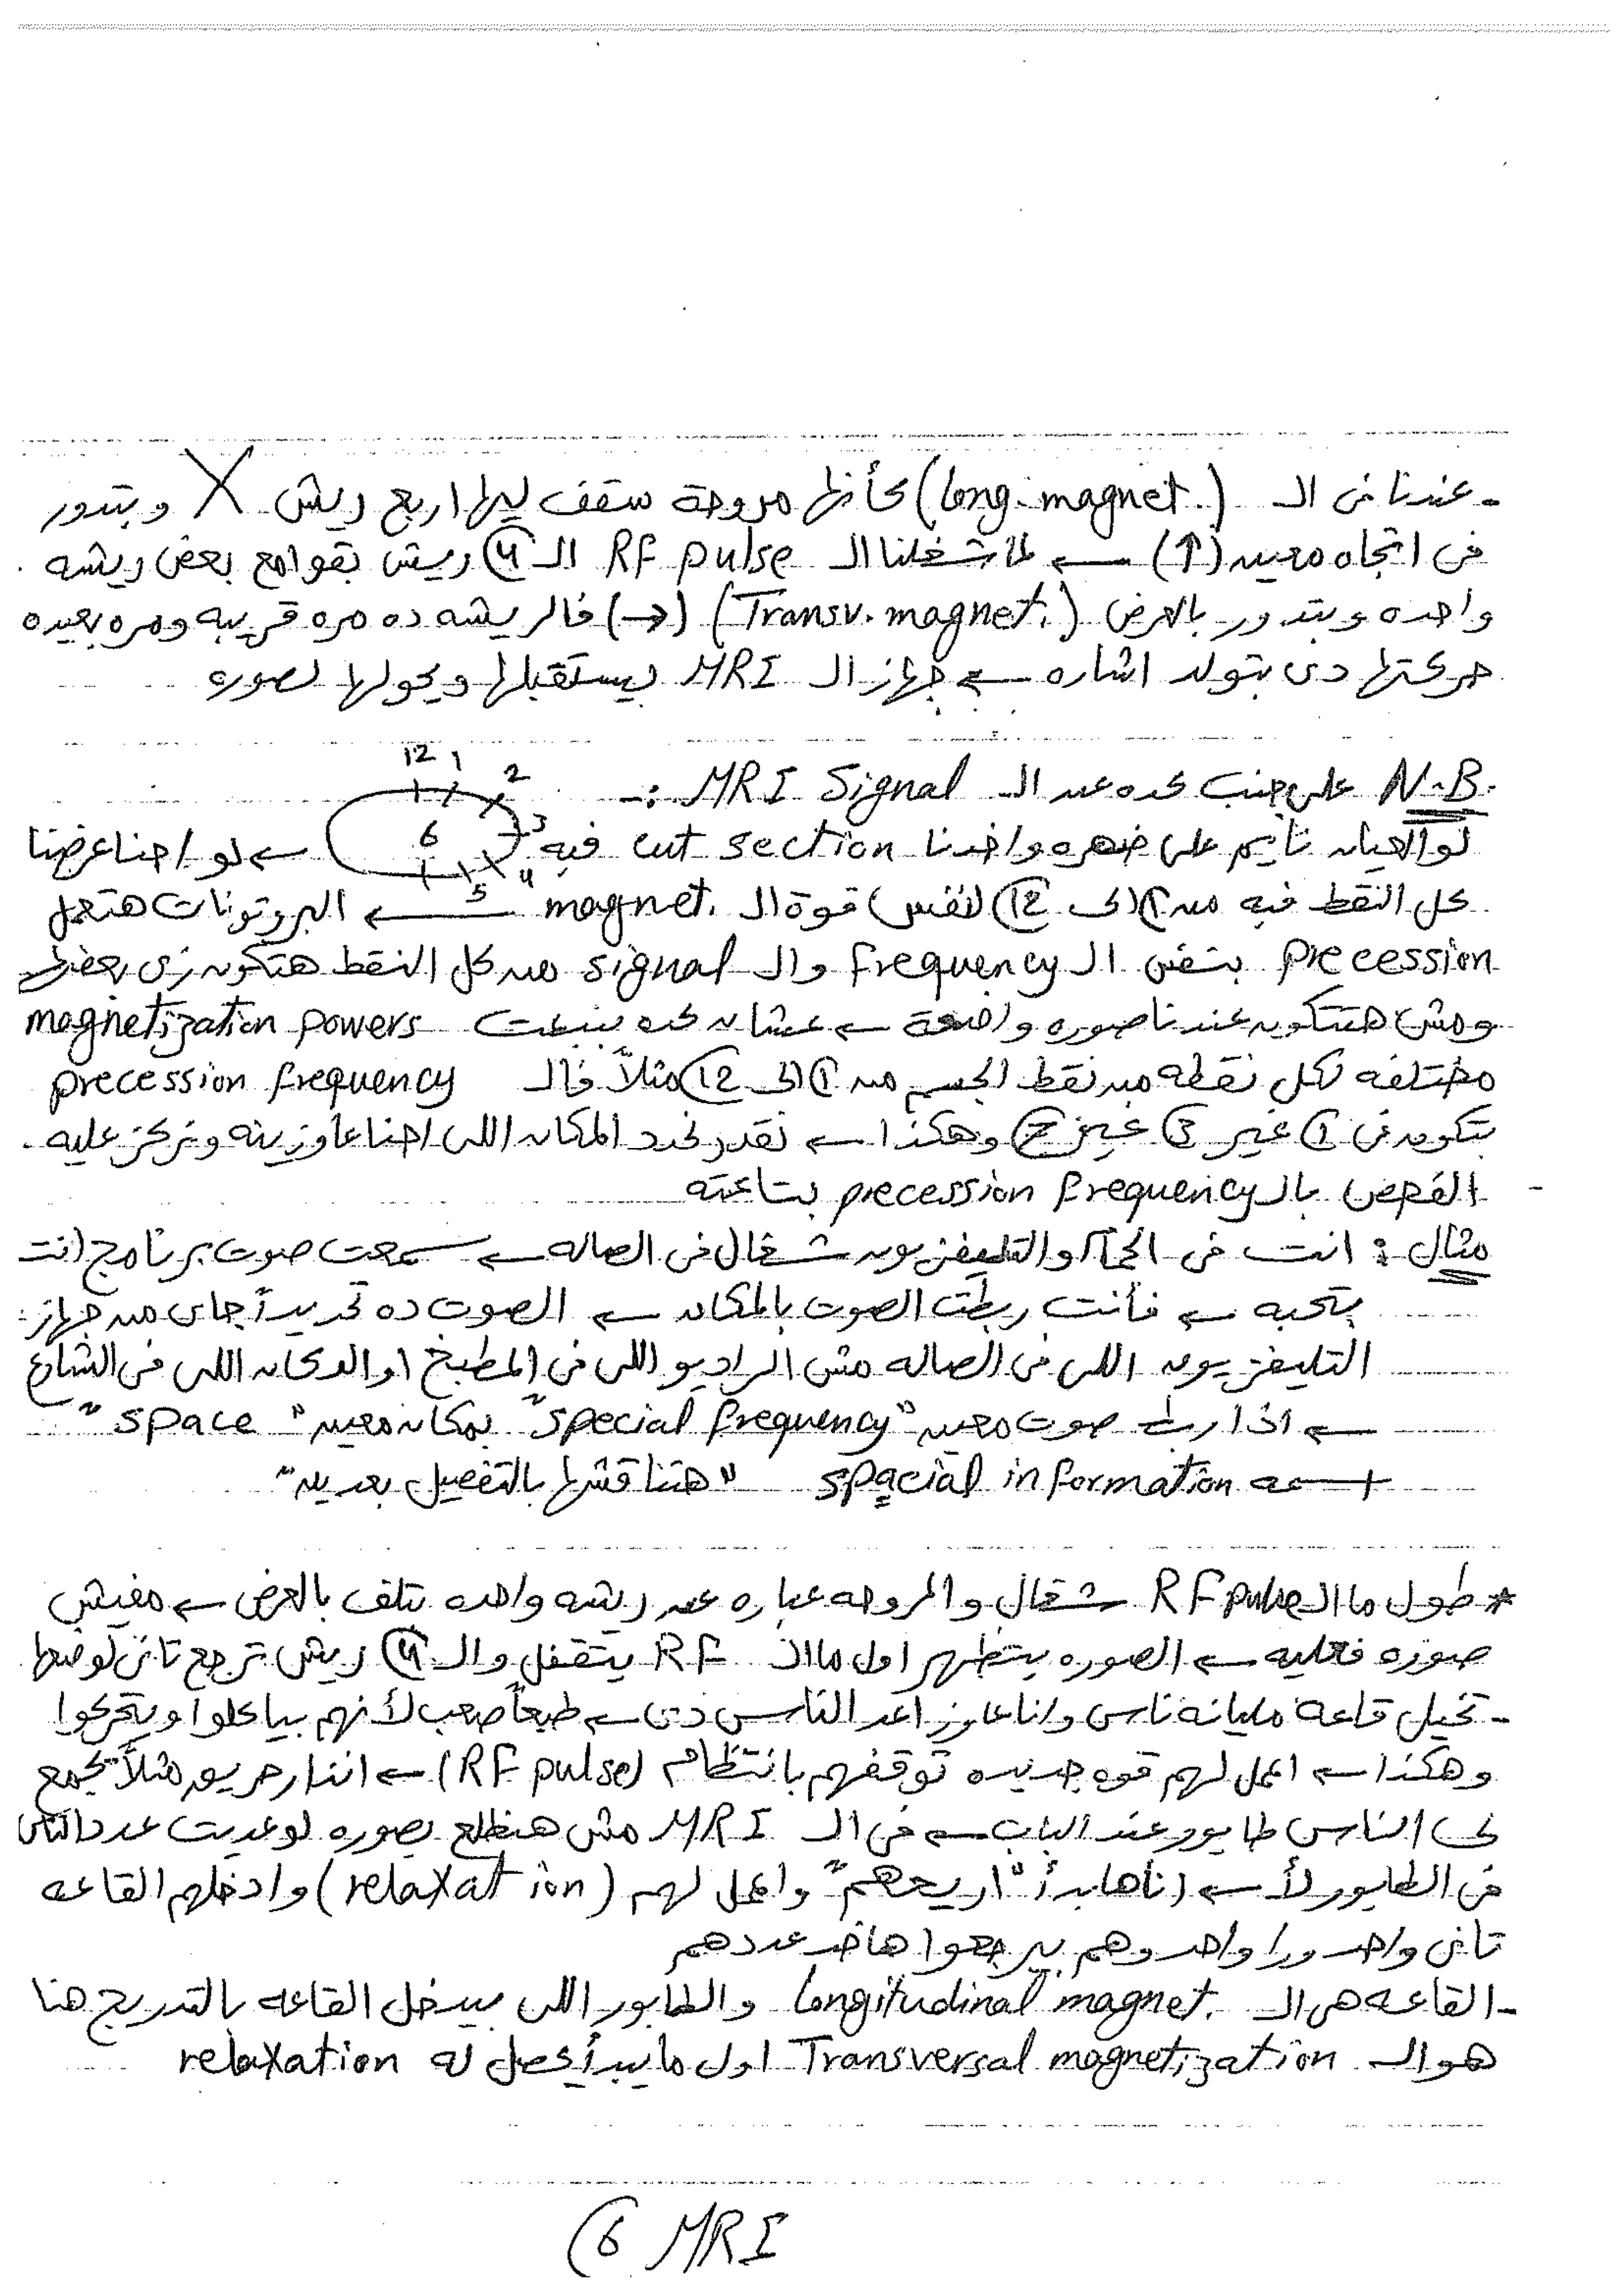 - عندنا فى الـ (long. magnet.) كأنها مروحة سقف ليها اربع ريش X وبتدور
فى اتجاه معين (↑) ← لما شغلنا الـ RF pulse الـ ④ ريش بقوا مع بعض ريشه
واحده وبتدور بالعرض (Transv. magnet.) (→) فالريشه ده مره قريبه ومره بعيده
حركتها دى بتولد اشاره ← جهاز الـ MRI بيستقبلها ويحولها لصوره
12 1 2 3 4 5 6
N.B. على جنب كده عن الـ MRI Signal :-
لو العيان نايم على ضهره واخدنا cut section فيه ← لو احنا عرضنا
كل النقط فيه من ① الى ⑫ لنفس قوة الـ magnet. ← البروتونات هتعمل
precession بنفس الـ frequency والـ signal من كل النقط هتكون زى بعضها
ومش هتتكون عندنا صوره واضحة ← عشان كده بنبعت magnetization powers
مختلفه لكل نقطه من نقط الجسم من ① الى ⑫ مثلاً فالـ precession frequency
بتكون فى ① غير ③ غير ⑦ وهكذا ← نقدر نحدد المكان اللى احنا عاوزينه ونركز عليه
- الفحص بالـ precession frequency بتاعته
مثال : انت فى الحمام والتليفزيون شغال فى الصاله ← سمعت صوت برنامج انت
بتحبه ← فأنت ربطت الصوت بالمكان ← الصوت ده تحديداً جاى من جهاز
التليفزيون اللى فى الصاله مش الراديو اللى فى المطبخ او الدكان اللى فى الشارع
← اذا ربط صوت معين "special frequency" بمكان معين "space"
← spacial information "هنناقشها بالتفصيل بعدين"
* طول ما الـ RF pulse شغال والمروحه عباره عن ريشه واحده بتلف بالعرض ← مفيش
صوره فعليه ← الصوره بتظهر اول ما الـ RF يتقفل والـ ④ ريش ترجع تانى لوضعها
- تخيل قاعة مليانه ناس وانا عاوز اعد الناس دى ← طبعاً صعب لأنهم بياكلوا ويتحركوا
وهكذا ← اعمل لهم قوه جديده توقفهم بانتظام (RF pulse) ← انذار حريق مثلاً يجمع
لى الناس طابور عند الباب ← فى الـ MRI مش هتطلع بصوره لو عديت عدد الناس
فى الطابور لأ ← انا هابدأ "اريحهم" واعمل لهم (relaxation) وادخلهم القاعه
تانى واحد ورا واحد وهم بيرجعوا هاخد عددهم
- القاعه هى الـ longitudinal magnet. والطابور اللى بيدخل القاعه بالتدريج هنا
هو الـ Transversal magnetization اول ما يبدأ يحصل له relaxation
(6 MRI